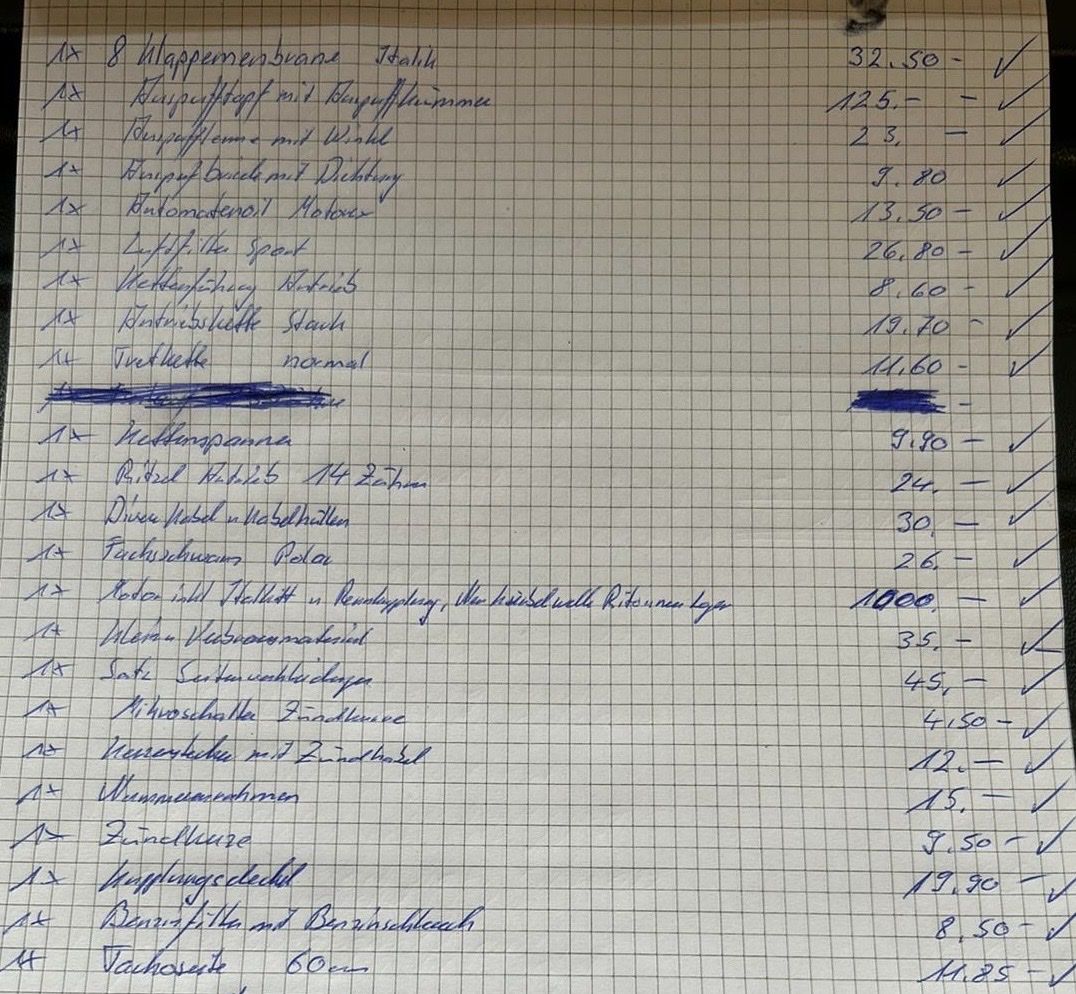 1x 8 Klappemenbrane Italik 32.50 - ✓
1x Auspufftopf mit Auspuffkrümmer 125.- - ✓
1x mit Winkel 23. - ✓
1x mit Dichtung 9.80 ✓
1x Automatenoil Motorex 13.50 - ✓
1x Luftfilter Sport 26.80 - ✓
1x Kettenführung Antrieb 8.60 - ✓
1x Antriebskette Stark 19.70 - ✓
1x Tretkette normal 11.60 - ✓
1x Kettenspanner 9.90 - ✓
1x Ritzel Antrieb 14 Zähne 24. - ✓
1x Kabel u Kabelhüllen 30. - ✓
1x Fuchsschwanz 26. - ✓
1x Motor inkl u 1000. - ✓
1x 35. - ✓
1x Satz Seitenverkleidungen 45. - ✓
1x Mikroschalter 4.50 - ✓
1x Kerzenstecker mit Zündkabel 12. - ✓
1x Nummernrahmen 15. - ✓
1x 9.50 - ✓
1x Kupplungsdeckel 19.90 - ✓
1x Benzinfilter mit Benzinschlauch 8.50 - ✓
1x 60cm 11.85 - ✓